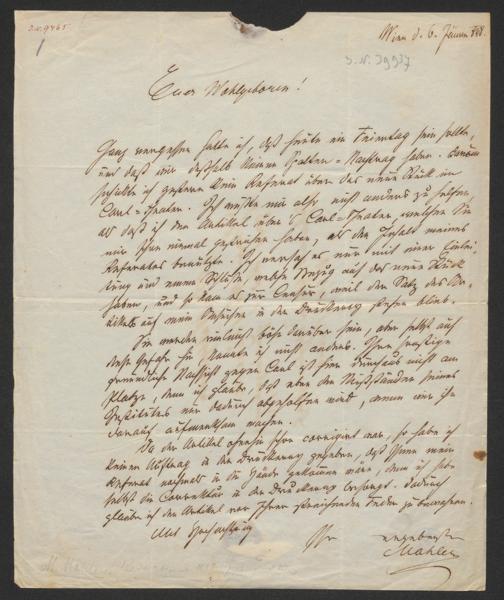 I.N. 9465
Wien d. 6. Jänner 848.
I.N. 39937
Euer Wohlgeboren!
Ganz vergessen hatte ich, daß heute ein Feiertag sein sollte,
und daß wir deßhalb keinen Nachtrag haben. Darum
schickte ich gestern kein Referat über das neue Stück im
Carl-Theater. Ich wußte mir also nicht anders zu helfen,
als daß ich den Artikel über's Carl-Theater, welchen Sie
mir schon einmal gestrichen haben, als den Inhalt meines
Referates benützte. Ich versah es nur mit einer Einlei
tung und einem Schluße, welche Bezug auf das neue Stück
haben, und so kam es zur Censur, weil der Satz des Ar
tikels auf mein Ersuchen in der Druckerey stehen blieb.
Sie werden vielleicht böse darüber sein, aber selbst auf
diese Gefahr hin konnte ich nicht anders. Ihre sonstige
freundliche Nachsicht gegen Carl ist hier durchaus nicht am
Platze, denn ich glaube, daß eben den Mißständen seines
Institutes nur dadurch abgeholfen wird, wenn wir ihn
darauf aufmerksam machen.
Da der Artikel ohnehin schon corrigirt war, so habe ich
keinen Auftrag in der Druckerey gegeben, daß Ihnen mein
Referat nochmals in die Hände gekommen wäre, denn ich habe
selbst die Correktur in der Druckerey besorgt. Dadurch
glaube ich den Artikel vor Ihrer streichenden Feder zu bewahren.
Mit Hochachtung
Ihr ergebenster
Mahler